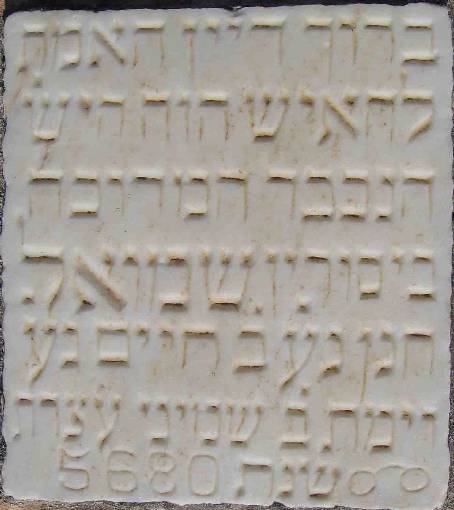 ברוך דיין האמת
להאיש הזה היש
הנכבד המדוכה
ביסורין שמואל
חנן נ.ע ב חיים נע
וימת ב שמיני עצרת
שנת 5680